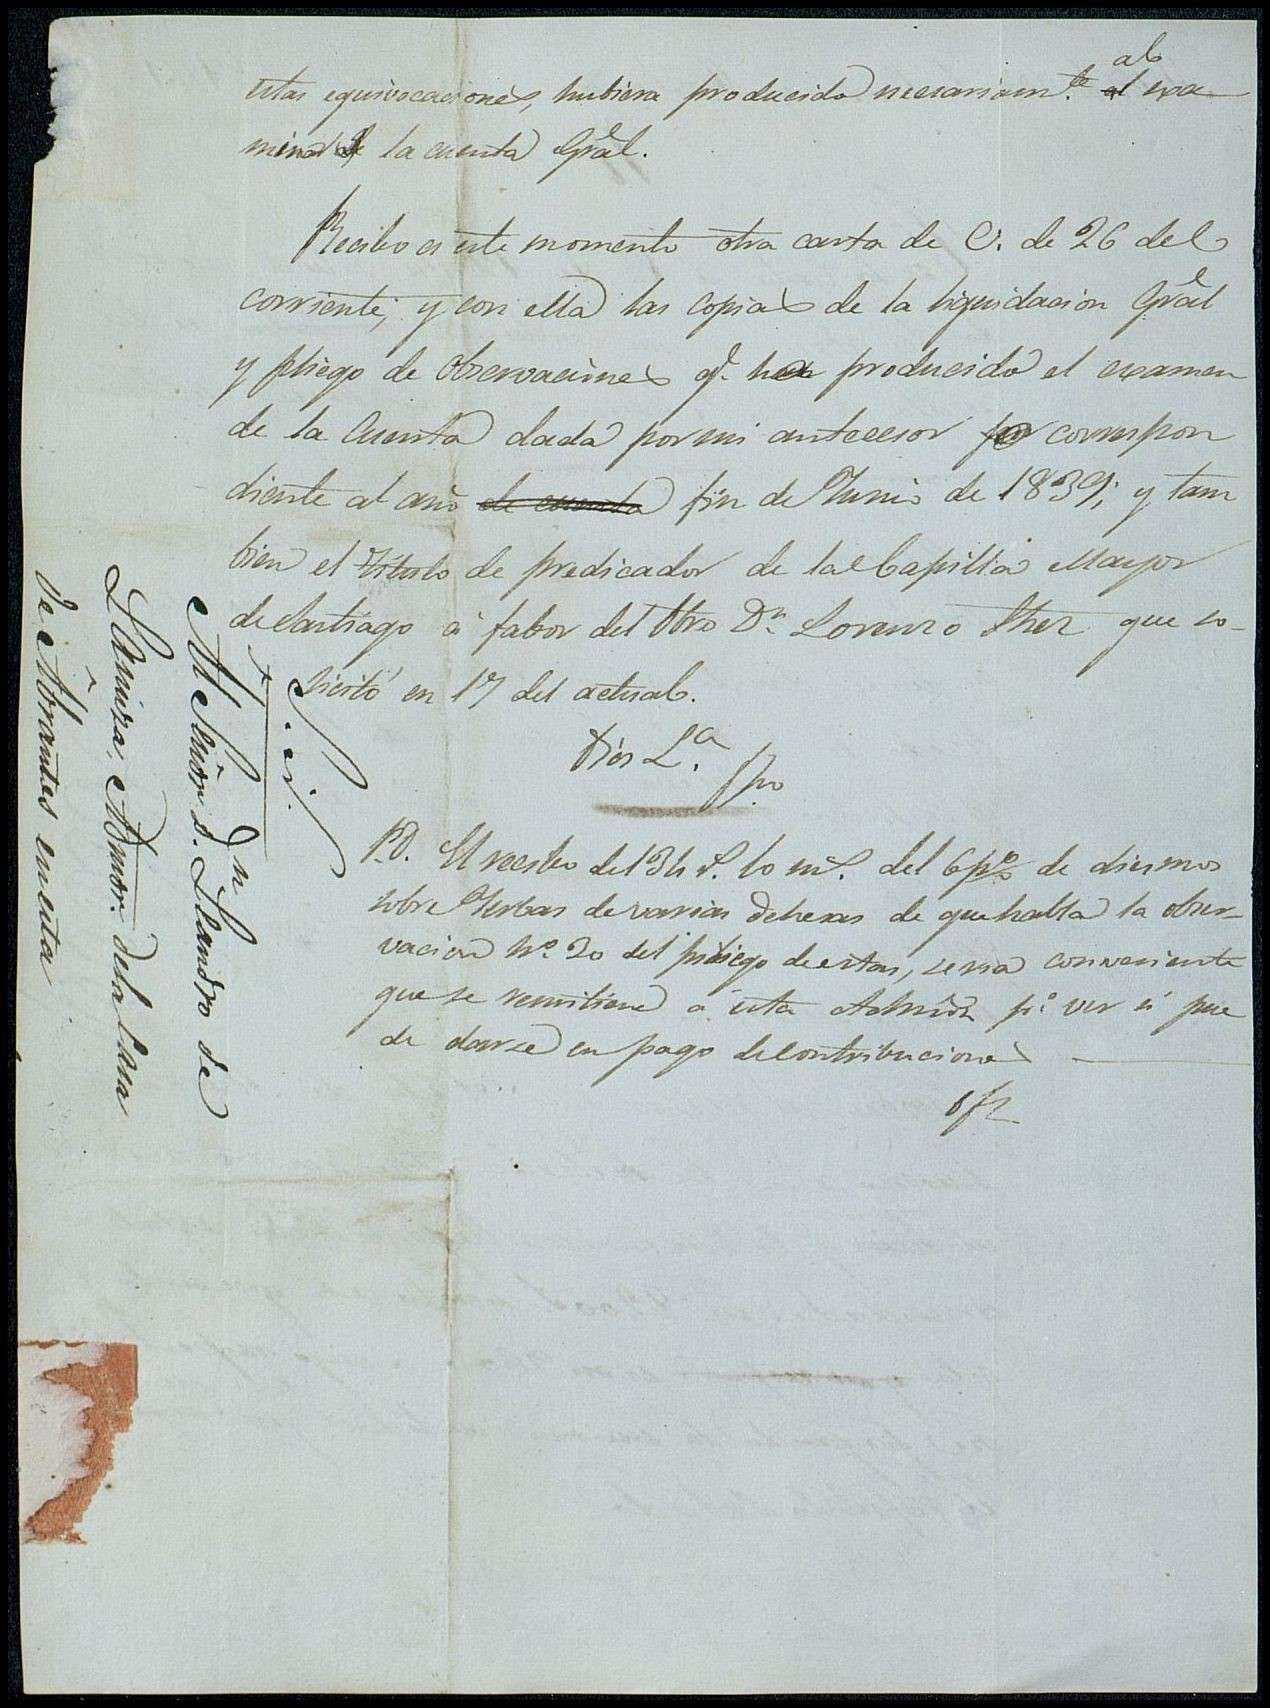 estas equivocaciones, hubiera producido necesariam.te al exa
minar la cuenta Gral.
Recibo en este momento otra carta de V. de 26 del
corriente, y con ella las copias de la liquidacion Gral
y pliego de observaciones q.e ha producido el examen
de la Cuenta dada por mi antecesor correspon
diente al año de cuenta fin de Junio de 1839; y tam
bien el título de predicador de la Capilla Mayor
de Santiago á fabor del Pbro D.n Lorenzo que so-
licitó en 17 del actual.
Dios L.a
P.D. El recibo del 34 r.s 10 m.s del 6 p.% de diesmos
sobre Yerbas de varias dehesas de que habla la obser-
vacion N.o 20 del pliego de estas, seria conveniente
que se remitiese á esta Admōn p.a ver si pue
de darse en pago de contribuciones
Al Señor D.n Leandro de
Lamiza, Admor. de la Casa
de Abrantes cuenta